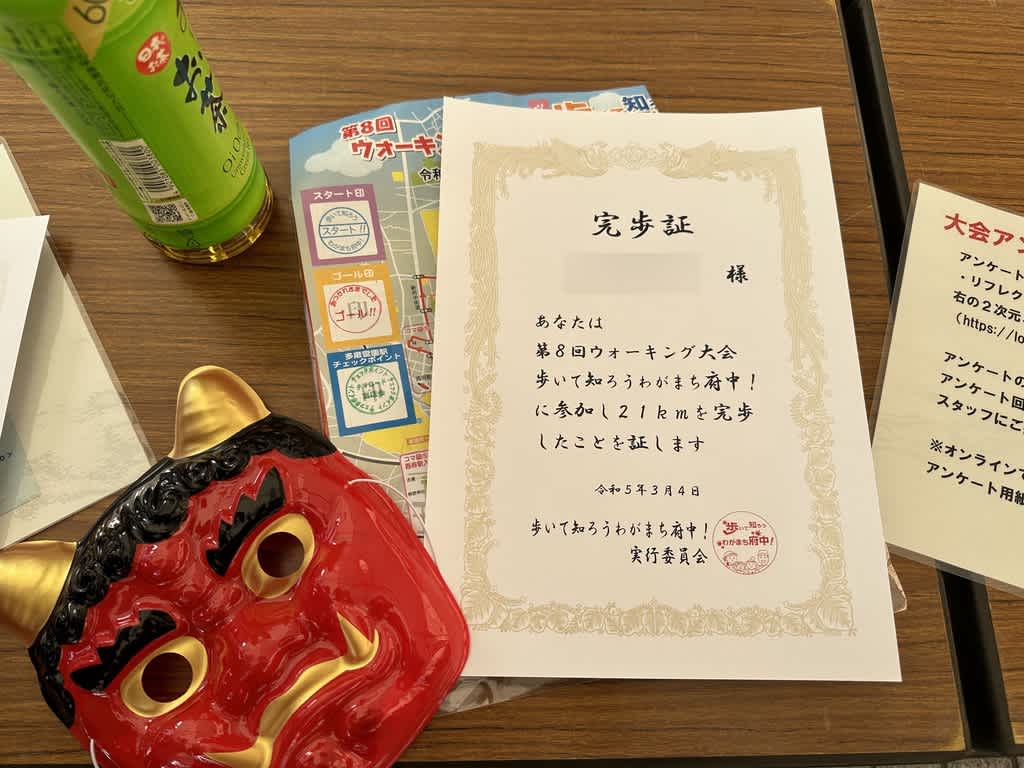 日本の
お茶
お〜いお茶
第8回
ウォーキン
知
令和
スタート印
歩いて知ろう
スタート!!
わがまち府中!
ゴール印
おつかれさまでした
ゴール!!
多磨霊園駅
チェックポイント
完歩証
様
あなたは
第8回ウォーキング大会
歩いて知ろうわがまち府中!
に参加し21kmを完歩
したことを証します
令和5年3月4日
歩いて知ろうわがまち府中!
実行委員会
歩いて知ろう
わがまち府中!
大会アン
アンケート
・リフレク
右の2次元
(https://lo
アンケートの
アンケート回
スタッフにご
※オンラインで
アンケート用紙